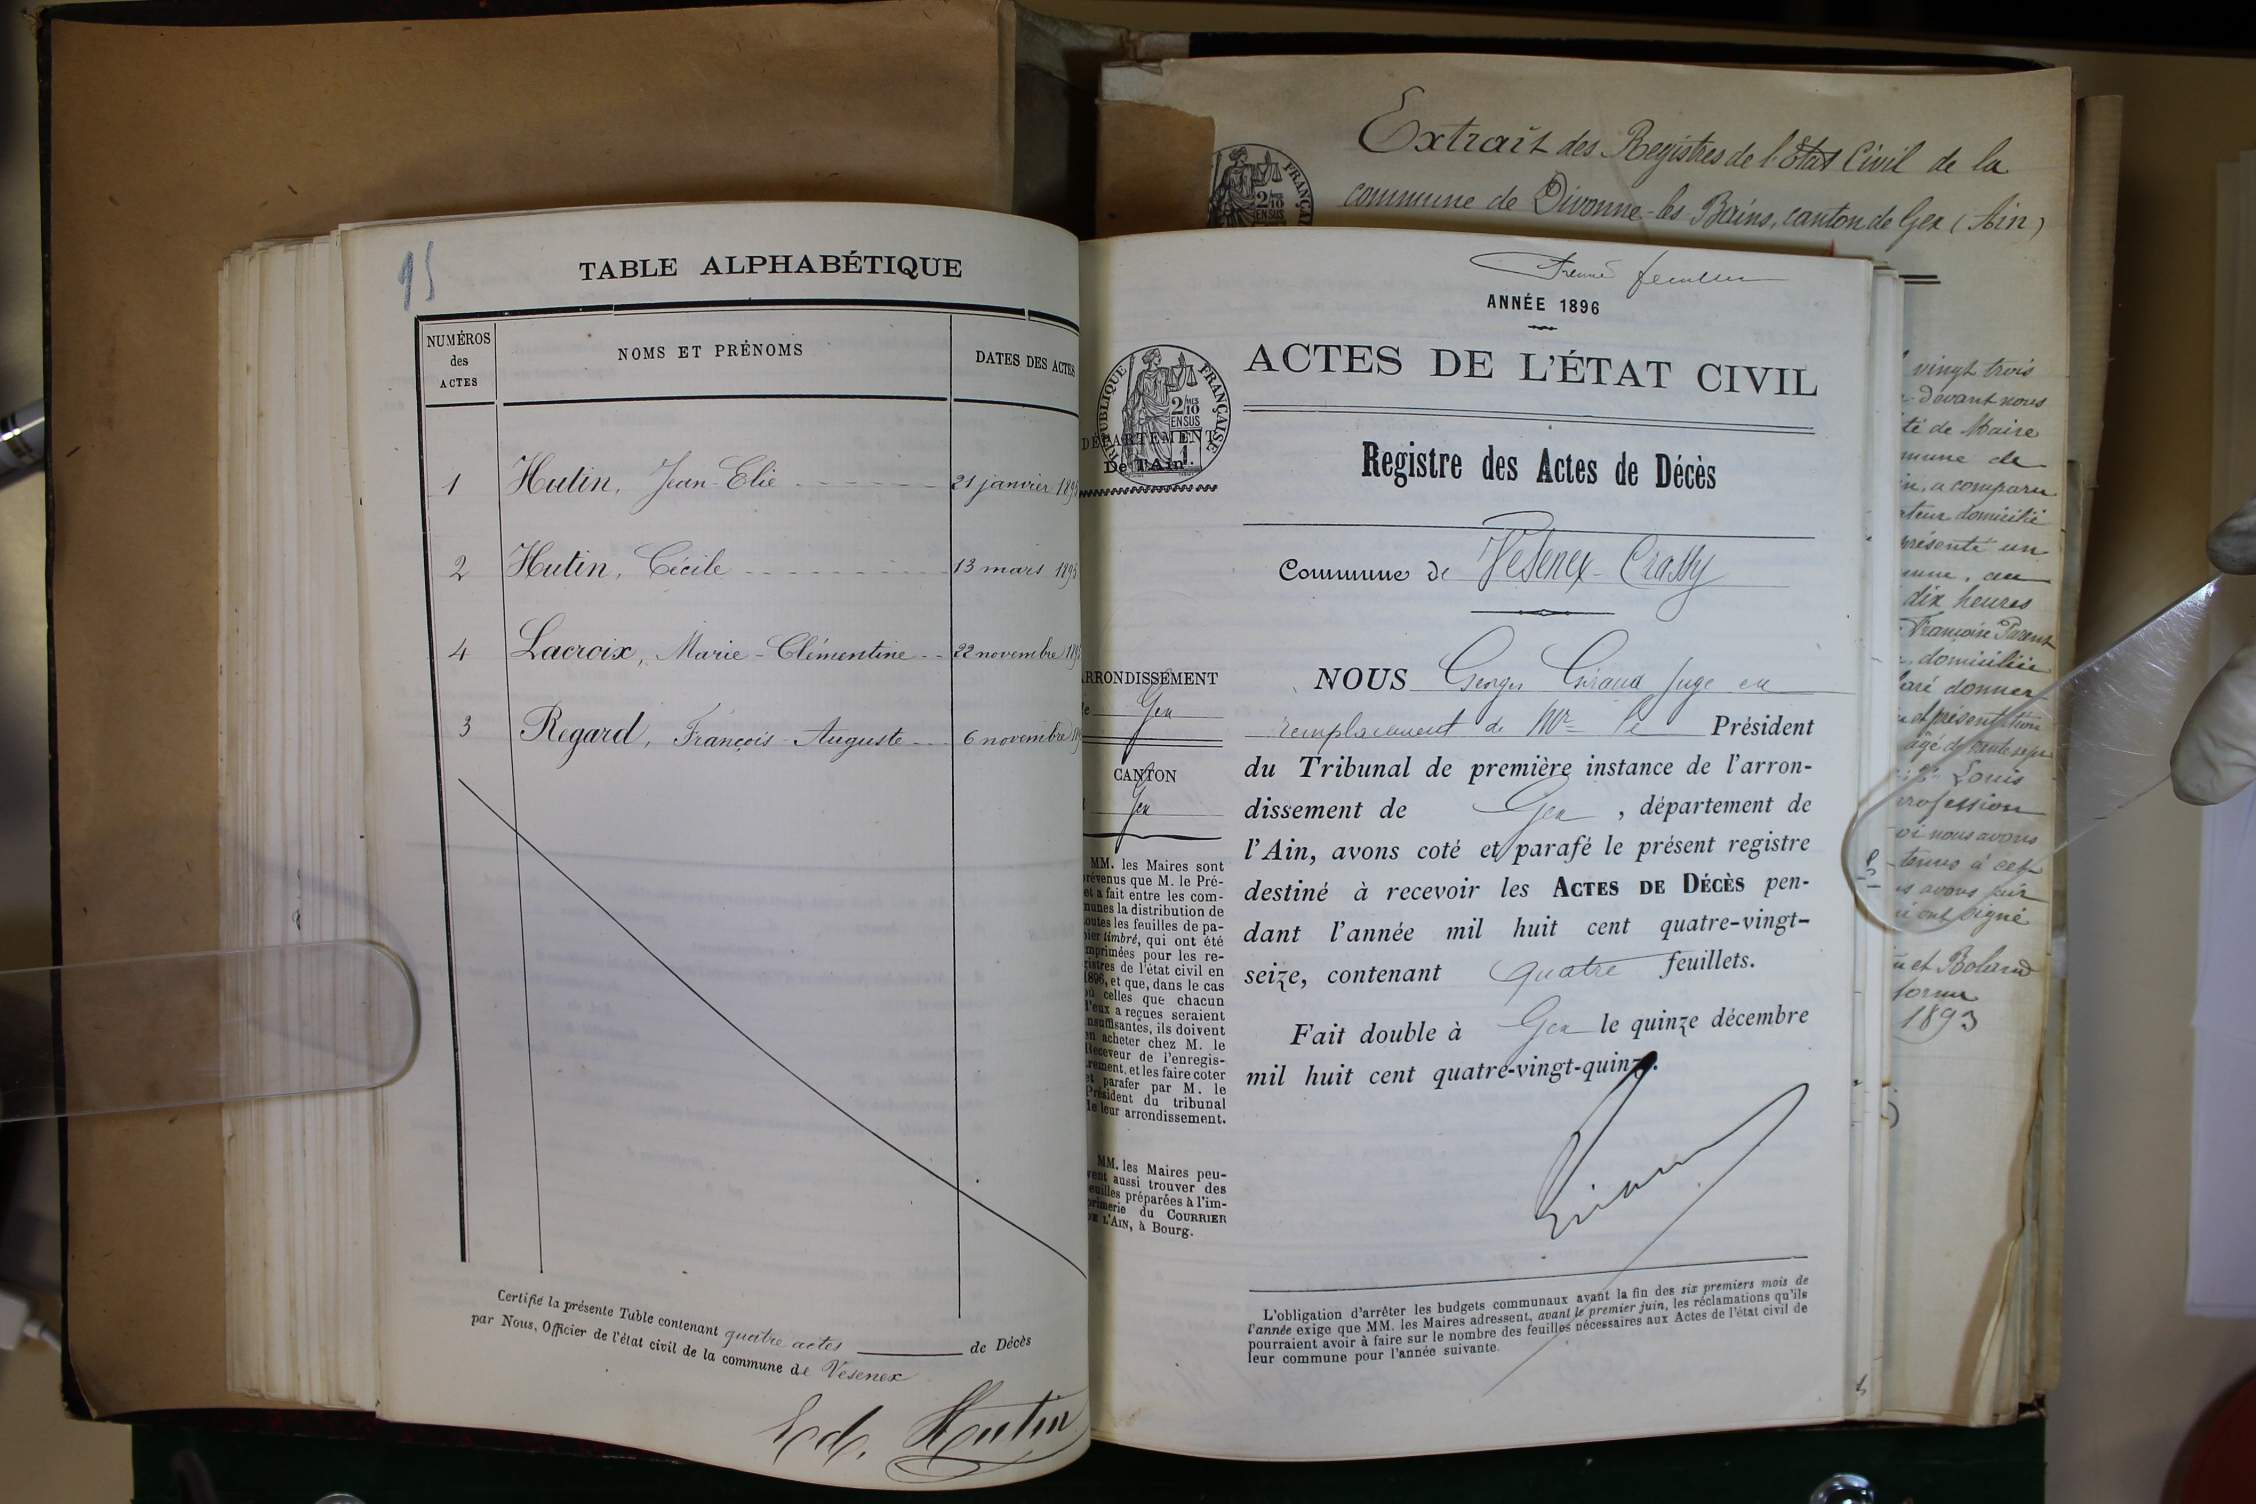 95
TABLE ALPHABÉTIQUE
NUMÉROS
des
ACTES
NOMS ET PRÉNOMS
DATES DES ACTES
1 Hutin, Jean-Elie 21 janvier 1895
2 Hutin, Cécile 13 mars 1895
4 Lacroix, Marie-Clémentine 22 novembre 189
3 Regard, François-Auguste 6 novembre 18
Certifié la présente Table contenant quatre actes de Décès
par Nous, Officier de l'état civil de la commune de Vesenex
Ed. Hutin
Extrait des Registres de l'Etat Civil de la
commune de Divonne-les Bains, canton de Gex (Ain)
FRANÇA
2 10
EN SUS
feuillet
ANNÉE 1896
ACTES DE L'ÉTAT CIVIL
RÉPUBLIQUE FRANÇAISE
2 MES 10
EN SUS
DÉPARTEMENT
De l'Ain
Registre des Actes de Décès
Commune de Vesenex-Crassy
ARRONDISSEMENT
de Gex
CANTON
Gex
MM. les Maires sont
prévenus que M. le Pré-
et a fait entre les com-
munes la distribution de
toutes les feuilles de pa-
pier timbré, qui ont été
imprimées pour les re-
gistres de l'état civil en
1896, et que, dans le cas
où celles que chacun
d'eux a reçues seraient
insuffisantes, ils doivent
en acheter chez M. le
Receveur de l'enregis-
trement, et les faire coter
et parafer par M. le
Président du tribunal
de leur arrondissement.
MM. les Maires peu-
vent aussi trouver des
feuilles préparées à l'im-
primerie du COURRIER
DE L'AIN, à Bourg.
NOUS Georges Giraud Juge en
remplacement de Mr le Président
du Tribunal de première instance de l'arron-
dissement de Gex, département de
l'Ain, avons coté et parafé le présent registre
destiné à recevoir les ACTES DE DÉCÈS pen-
dant l'année mil huit cent quatre-vingt-
seize, contenant quatre feuillets.
Fait double à Gex le quinze décembre
mil huit cent quatre-vingt-quinze.
L'obligation d'arrêter les budgets communaux avant la fin des six premiers mois de
l'année exige que MM. les Maires adressent, avant le premier juin, les réclamations qu'ils
pourraient avoir à faire sur le nombre des feuilles nécessaires aux Actes de l'état civil de
leur commune pour l'année suivante.
vingt trois
devant nous
té de Maire
mune de
in, a comparu
ateur domicilié
présenté un
mune, au
dix heures
Françoise Parent
domiciliée
laré donner
et présentation
âgé de trente sept
Louis
profession
oi nous avons
tenus à cet
us avons par
ui ont signé
et Boland
forme
1893